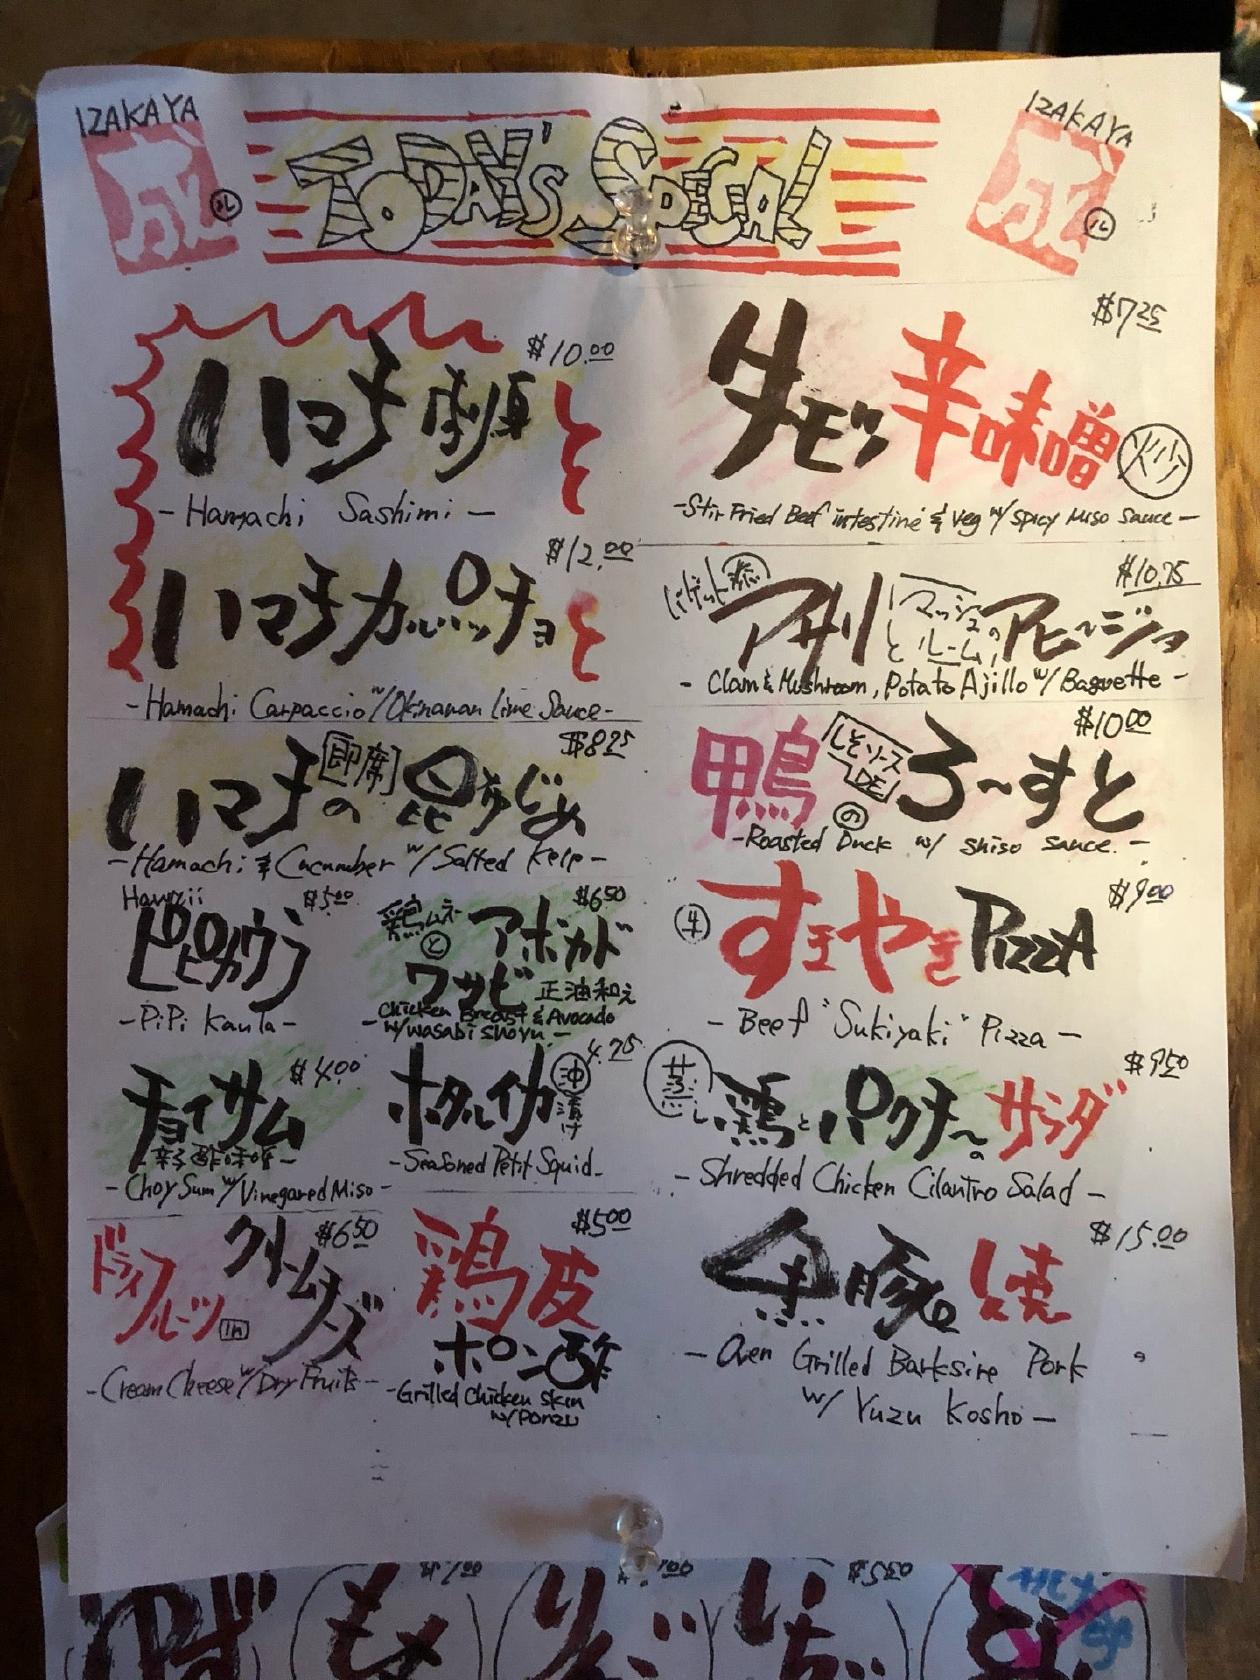 IZAKAYA
成
ル
TODAY'S SPECIAL
IZAKAYA
成
ル
$10.00
ハマチ刺身
- Hamachi Sashimi -
$12.00
ハマチカルパッチョ
- Hamachi Carpaccio w/ Okinawan Lime Sauce -
$8.25
ハマチの即席昆布じめ
- Hamachi & Cucumber w/ Salted Kelp -
Hawaii
$5.00
ピピカウラ
- PiPi Kaula -
$6.50
鶏ムネとアボカド
ワサビ正油和え
Chicken Breast & Avocado
- w/ wasabi shoyu -
$4.00
チョイサム
- 辛子酢味噌 -
- Choy Sum w/ Vinegared Miso -
4.75
ホタルイカ沖漬け
- Seasoned Petit Squid -
$6.50
ドライフルーツ in クリームチーズ
- Cream Cheese w/ Dry Fruits -
$5.00
鶏皮
ポン酢
- Grilled Chicken Skin
w/ Ponzu
$7.25
牛モツ辛味噌炒
- Stir Fried Beef intestine & Veg w/ Spicy Miso Sauce -
$10.75
バゲット添
アサリとマッシュルームのアヒージョ
- Clam & Mushroom, Potato Ajillo w/ Baguette -
$10.00
鴨のろ〜すと
しそソースDE
- Roasted Duck w/ shiso sauce. -
$9.00
牛すきやきPizzA
- Beef "Sukiyaki" Pizza -
$9.50
蒸し鶏とパクチーのサラダ
- Shredded Chicken Cilantro Salad -
$15.00
黒豚塩焼
- Oven Grilled Barksire Pork
w/ Yuzu Kosho -
$5.50